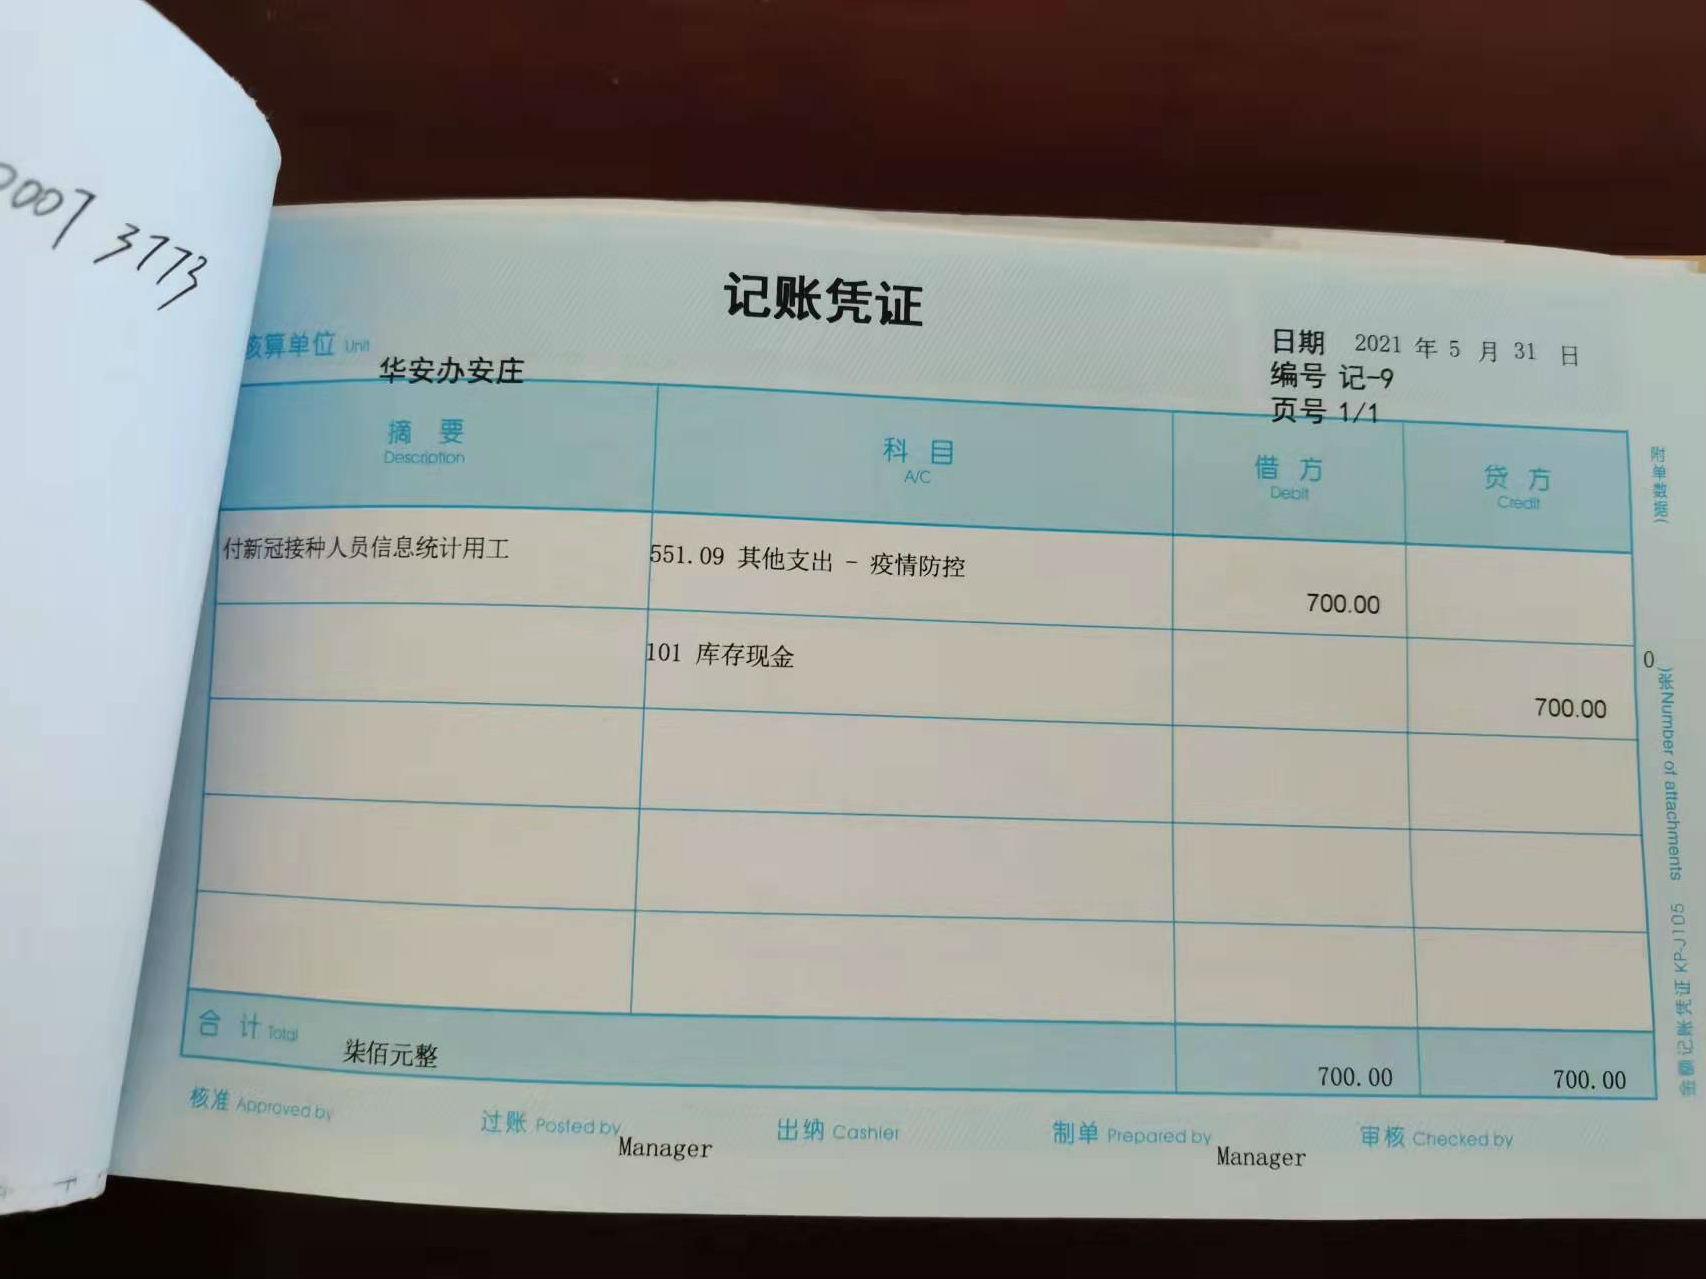 2007 3773
记账凭证
核算单位 Unit
华安办安庄
日期 2021 年 5 月 31 日
编号 记-9
页号 1/1
摘 要 科 目 借 方 贷 方
Description A/C Debit Credit
付新冠接种人员信息统计用工 551.09 其他支出 - 疫情防控 700.00
101 库存现金 700.00
合 计 Total 柒佰元整 700.00 700.00
核准 Approved by 过账 Posted by Manager 出纳 Cashier 制单 Prepared by Manager 审核 Checked by
附单数据( 0 张)Number of attachments
金额记账凭证 KP-J105